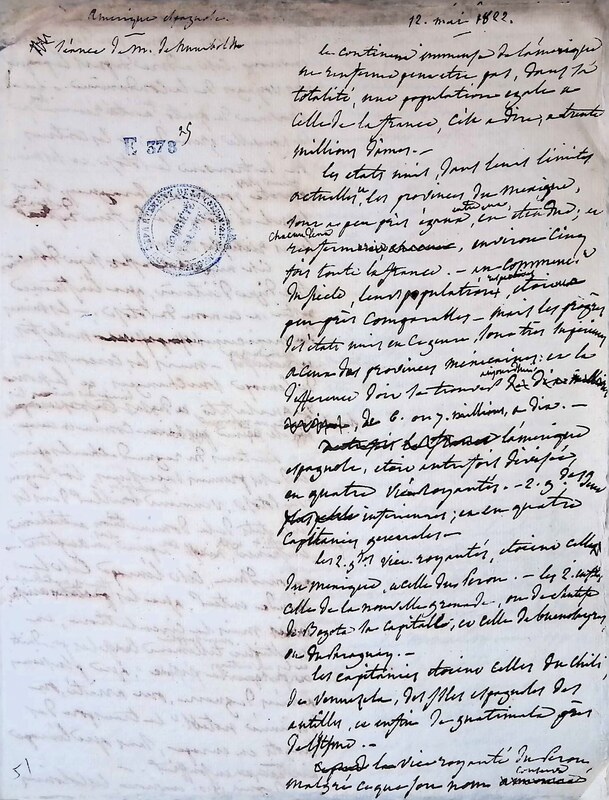 Amérique espagnole.
12. mai 1822.
Séance de M. de Humboldt
E 378
25
le continent immense de l'amérique
ne renferme peut etre pas, dans sa
totalité, une population egale a
celle de la france, C'est a dire, a trente
millions d'ames. —
les etats unis, dans leurs limites
actuelles, les provinces du mexique,
sont a peu près egaux, en etendue; et
chacun d'eux
renferme environ cinq
fois toute la france. — au commencemt
du siecle, leurs populations, etaient
peu près comparables — mais les progrès
des etats unis en ce genre, sont tres superieurs
a ceux des provinces mexicaines: et la
difference doit se trouver aujourd'hui
de 6. ou 7. millions, a dix. —
l'amérique
espagnole, etait autrefois divisée
en quatre Vice royautés. — 2. gdes
inferieures; et en quatre
Capitainies generales —
les 2. gdes vice-royautés, etaient celles
du mexique, et celle du Perou. — les 2. infres
celle de la nouvelle grenade, ou de
de Bogota la capitale, et celle de buenosayres
ou du Paraguay. —
les capitainies etaient celles du Chili,
de Vennezuela, des Isles espagnoles des
antilles, et enfin de guatimala près
de l'Isthme. —
la vice royauté du Perou,
malgré ce que son nom
51